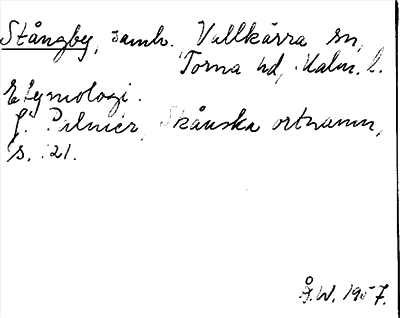 Stångby, samh. Vallkärra sn,
Torna hd, Malm. l.
Etymologi.
J. Palmér, Skånska ortnamn,
s. 121.
Å.W. 1957.